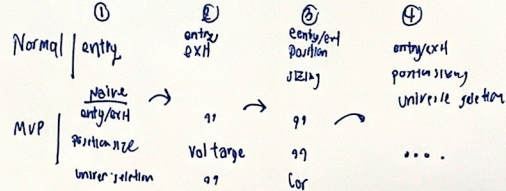 ① ② ③ ④
Normal | entry
entry
exit
eentry/exit
position
sizing
entry/exit
position sizing
universe seletion
MVP |
Naive
entry/exit
position size
univer seletion
→ "
vol targe
"
→ "
"
Cor
....